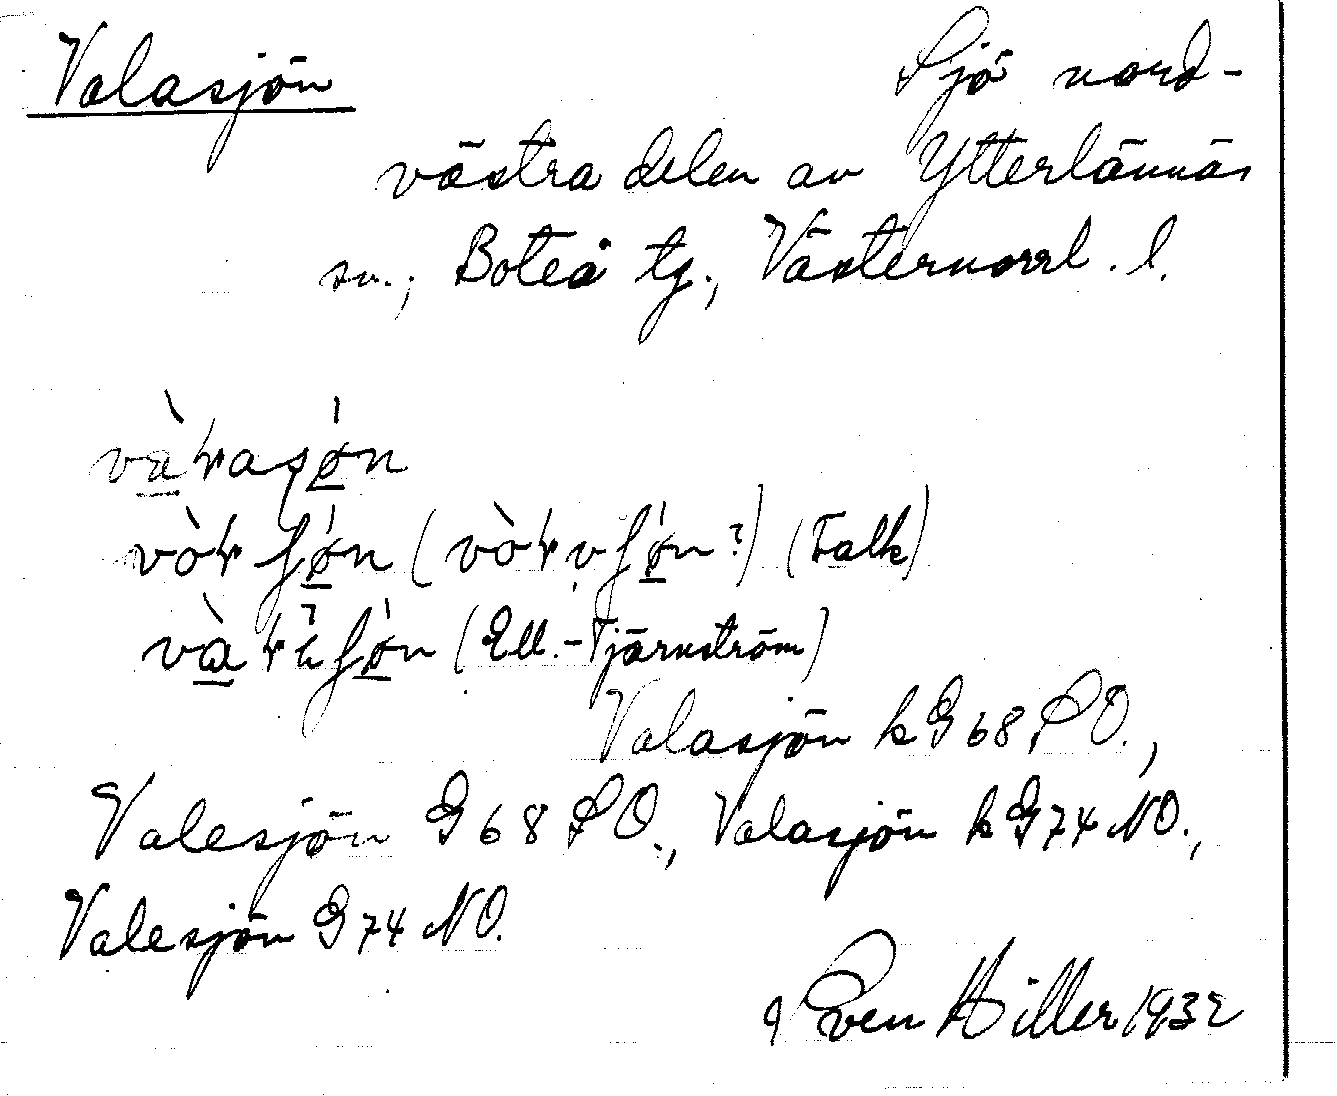 Valasjön Sjö nord-
västra delen av Ytterlännäs
sn., Boteå tg., Västernorrl. l.
(Falk)
(Ell.-Tjärnström)
Valasjön kG 68 SO.,
Valesjön G 68 SO., Valasjön kG 74 NO.,
Valesjön G 74 NO.
Sven Hiller 1932